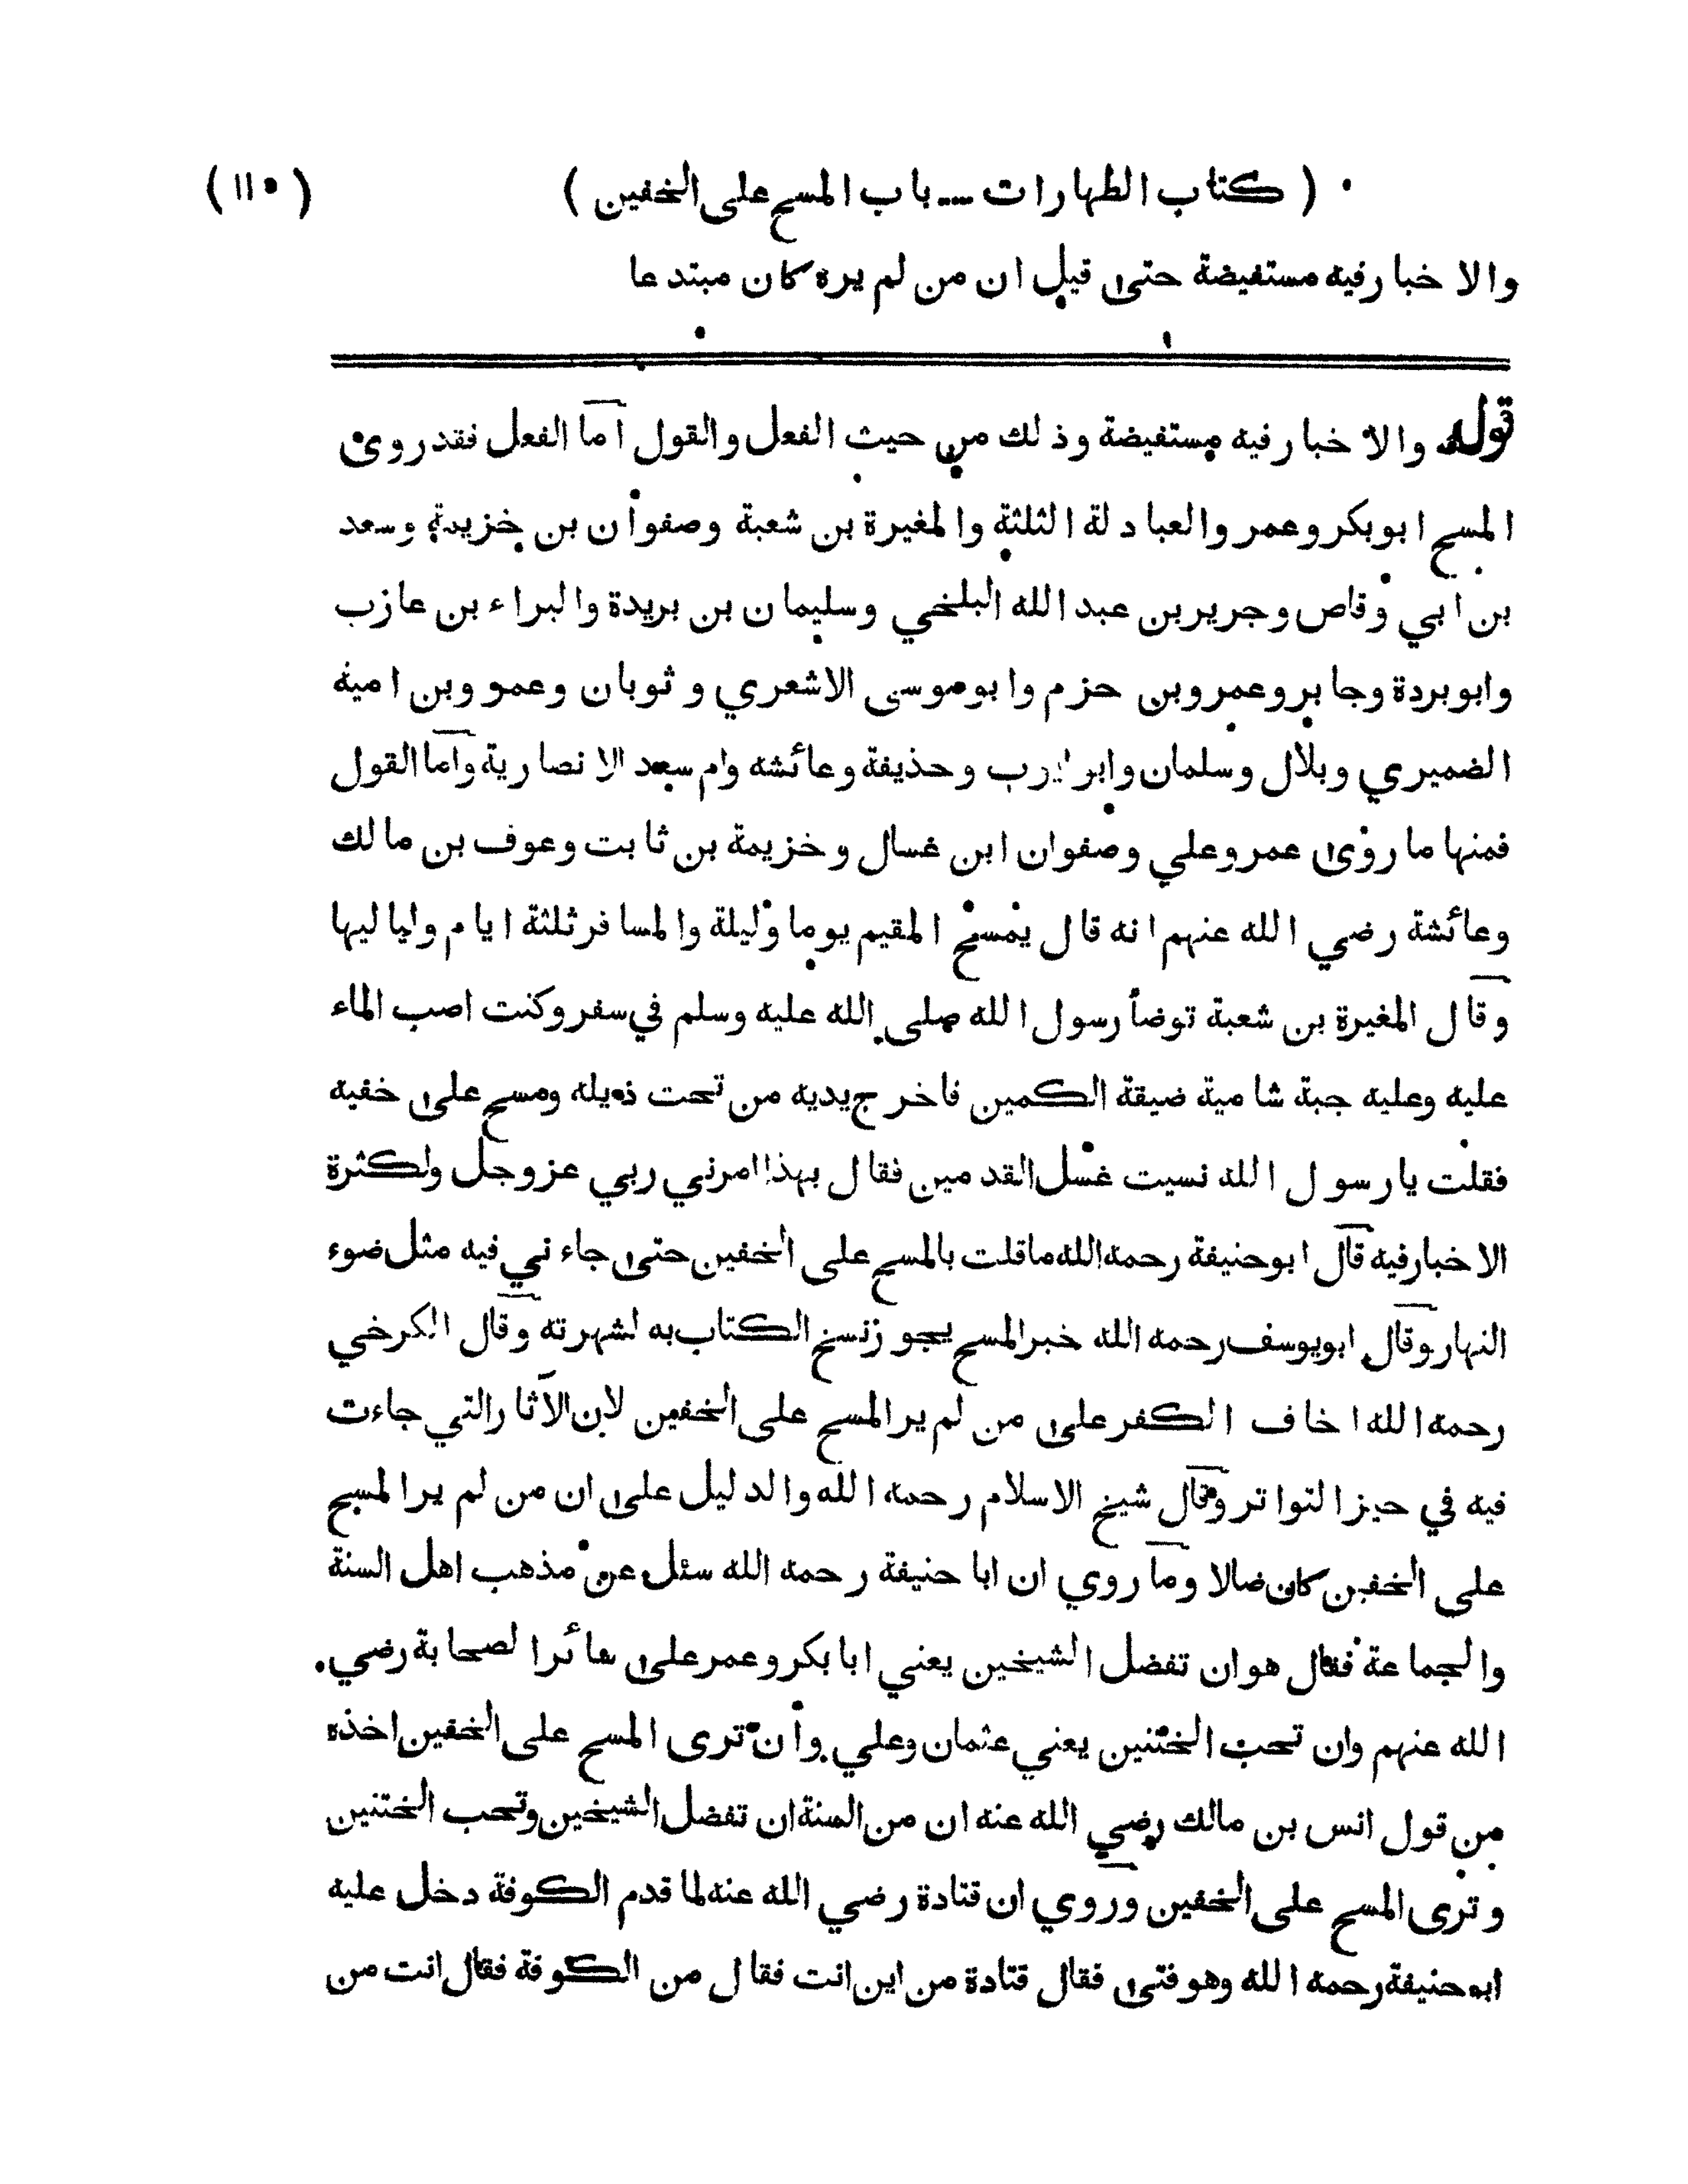 ( كتاب الطهارات ــ باب المسح على الخفين ) ( ١١٥ )
والاخبار فيه مستفيضة حتى قيل ان من لم يره كان مبتدعا
قوله والاخبار فيه مستفيضة وذلك من حيث الفعل والقول اما الفعل فقد روى
المسح ابو بكر وعمر والعبادلة الثلثة والمغيرة بن شعبة وصفوان بن خزيمة وسعد
بن ابي وقاص وجرير بن عبد الله البلخي وسليمان بن بريدة والبراء بن عازب
وابو بردة وجابر وعمرو بن حزم وابو موسى الاشعري وثوبان وعمرو بن امية
الضميري وبلال وسلمان وحذيفة وعائشه وام سعد الانصارية واما القول
فمنها ما روى عمر وعلي وصفوان ابن غسال وخزيمة بن ثابت وعوف بن مالك
وعائشة رضي الله عنهم انه قال يمسح المقيم يوما وليلة والمسافر ثلثة ايام ولياليها
وقال المغيرة بن شعبة توضأ رسول الله صلى الله عليه وسلم في سفر وكنت اصب الماء
عليه وعليه جبة شامية ضيقة الكمين فاخرج يديه من تحت ذيله ومسح على خفيه
فقلت يا رسول الله نسيت غسل القدمين فقال بهذا امرني ربي عز وجل ولكثرة
الاخبار فيه قال ابو حنيفة رحمه الله ما قلت بالمسح على الخفين حتى جاءني فيه مثل ضوء
النهار وقال ابو يوسف رحمه الله خبر المسح يجوز نسخ الكتاب به لشهرته وقال الكرخي
رحمه الله اخاف الكفر على من لم ير المسح على الخفين لان الآثار التي جاءت
فيه في حيز التواتر وقال شيخ الاسلام رحمه الله والدليل على ان من لم ير المسح
على الخفين كان ضالا وما روي ان ابا حنيفة رحمه الله سئل عن مذهب اهل السنة
والجماعة فقال هو ان تفضل الشيخين يعني ابا بكر وعمر على سائر الصحابة رضي
الله عنهم وان تحب الختنين يعني عثمان وعلي وان ترى المسح على الخفين اخذه
من قول انس بن مالك رضي الله عنه ان من السنة ان تفضل الشيخين وتحب الختنين
وترى المسح على الخفين وروي ان قتادة رضي الله عنه لما قدم الكوفة دخل عليه
ابو حنيفة رحمه الله وهو فتى فقال قتادة من اين انت فقال من الكوفة فقال انت من